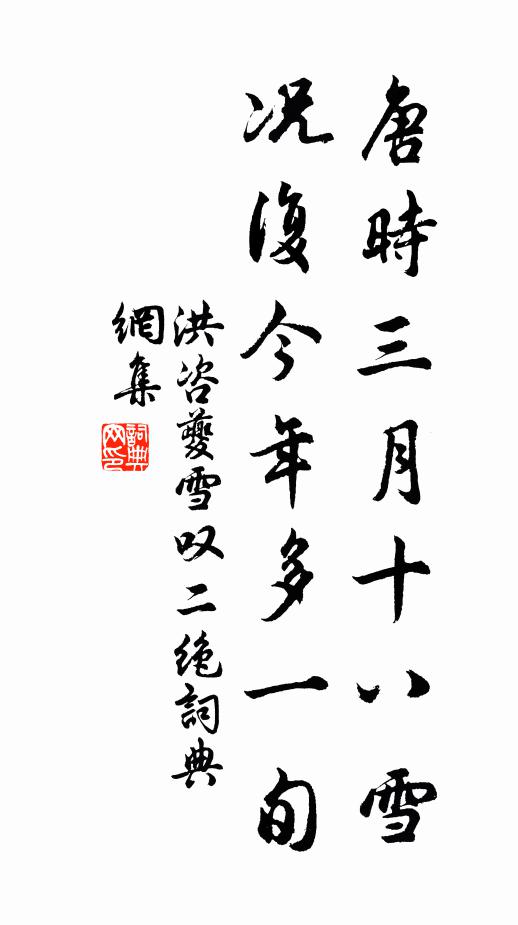 唐時三月十八雪
况復今年多一旬
洪咨夔雪叹二绝詞典
網集
詞典
网印